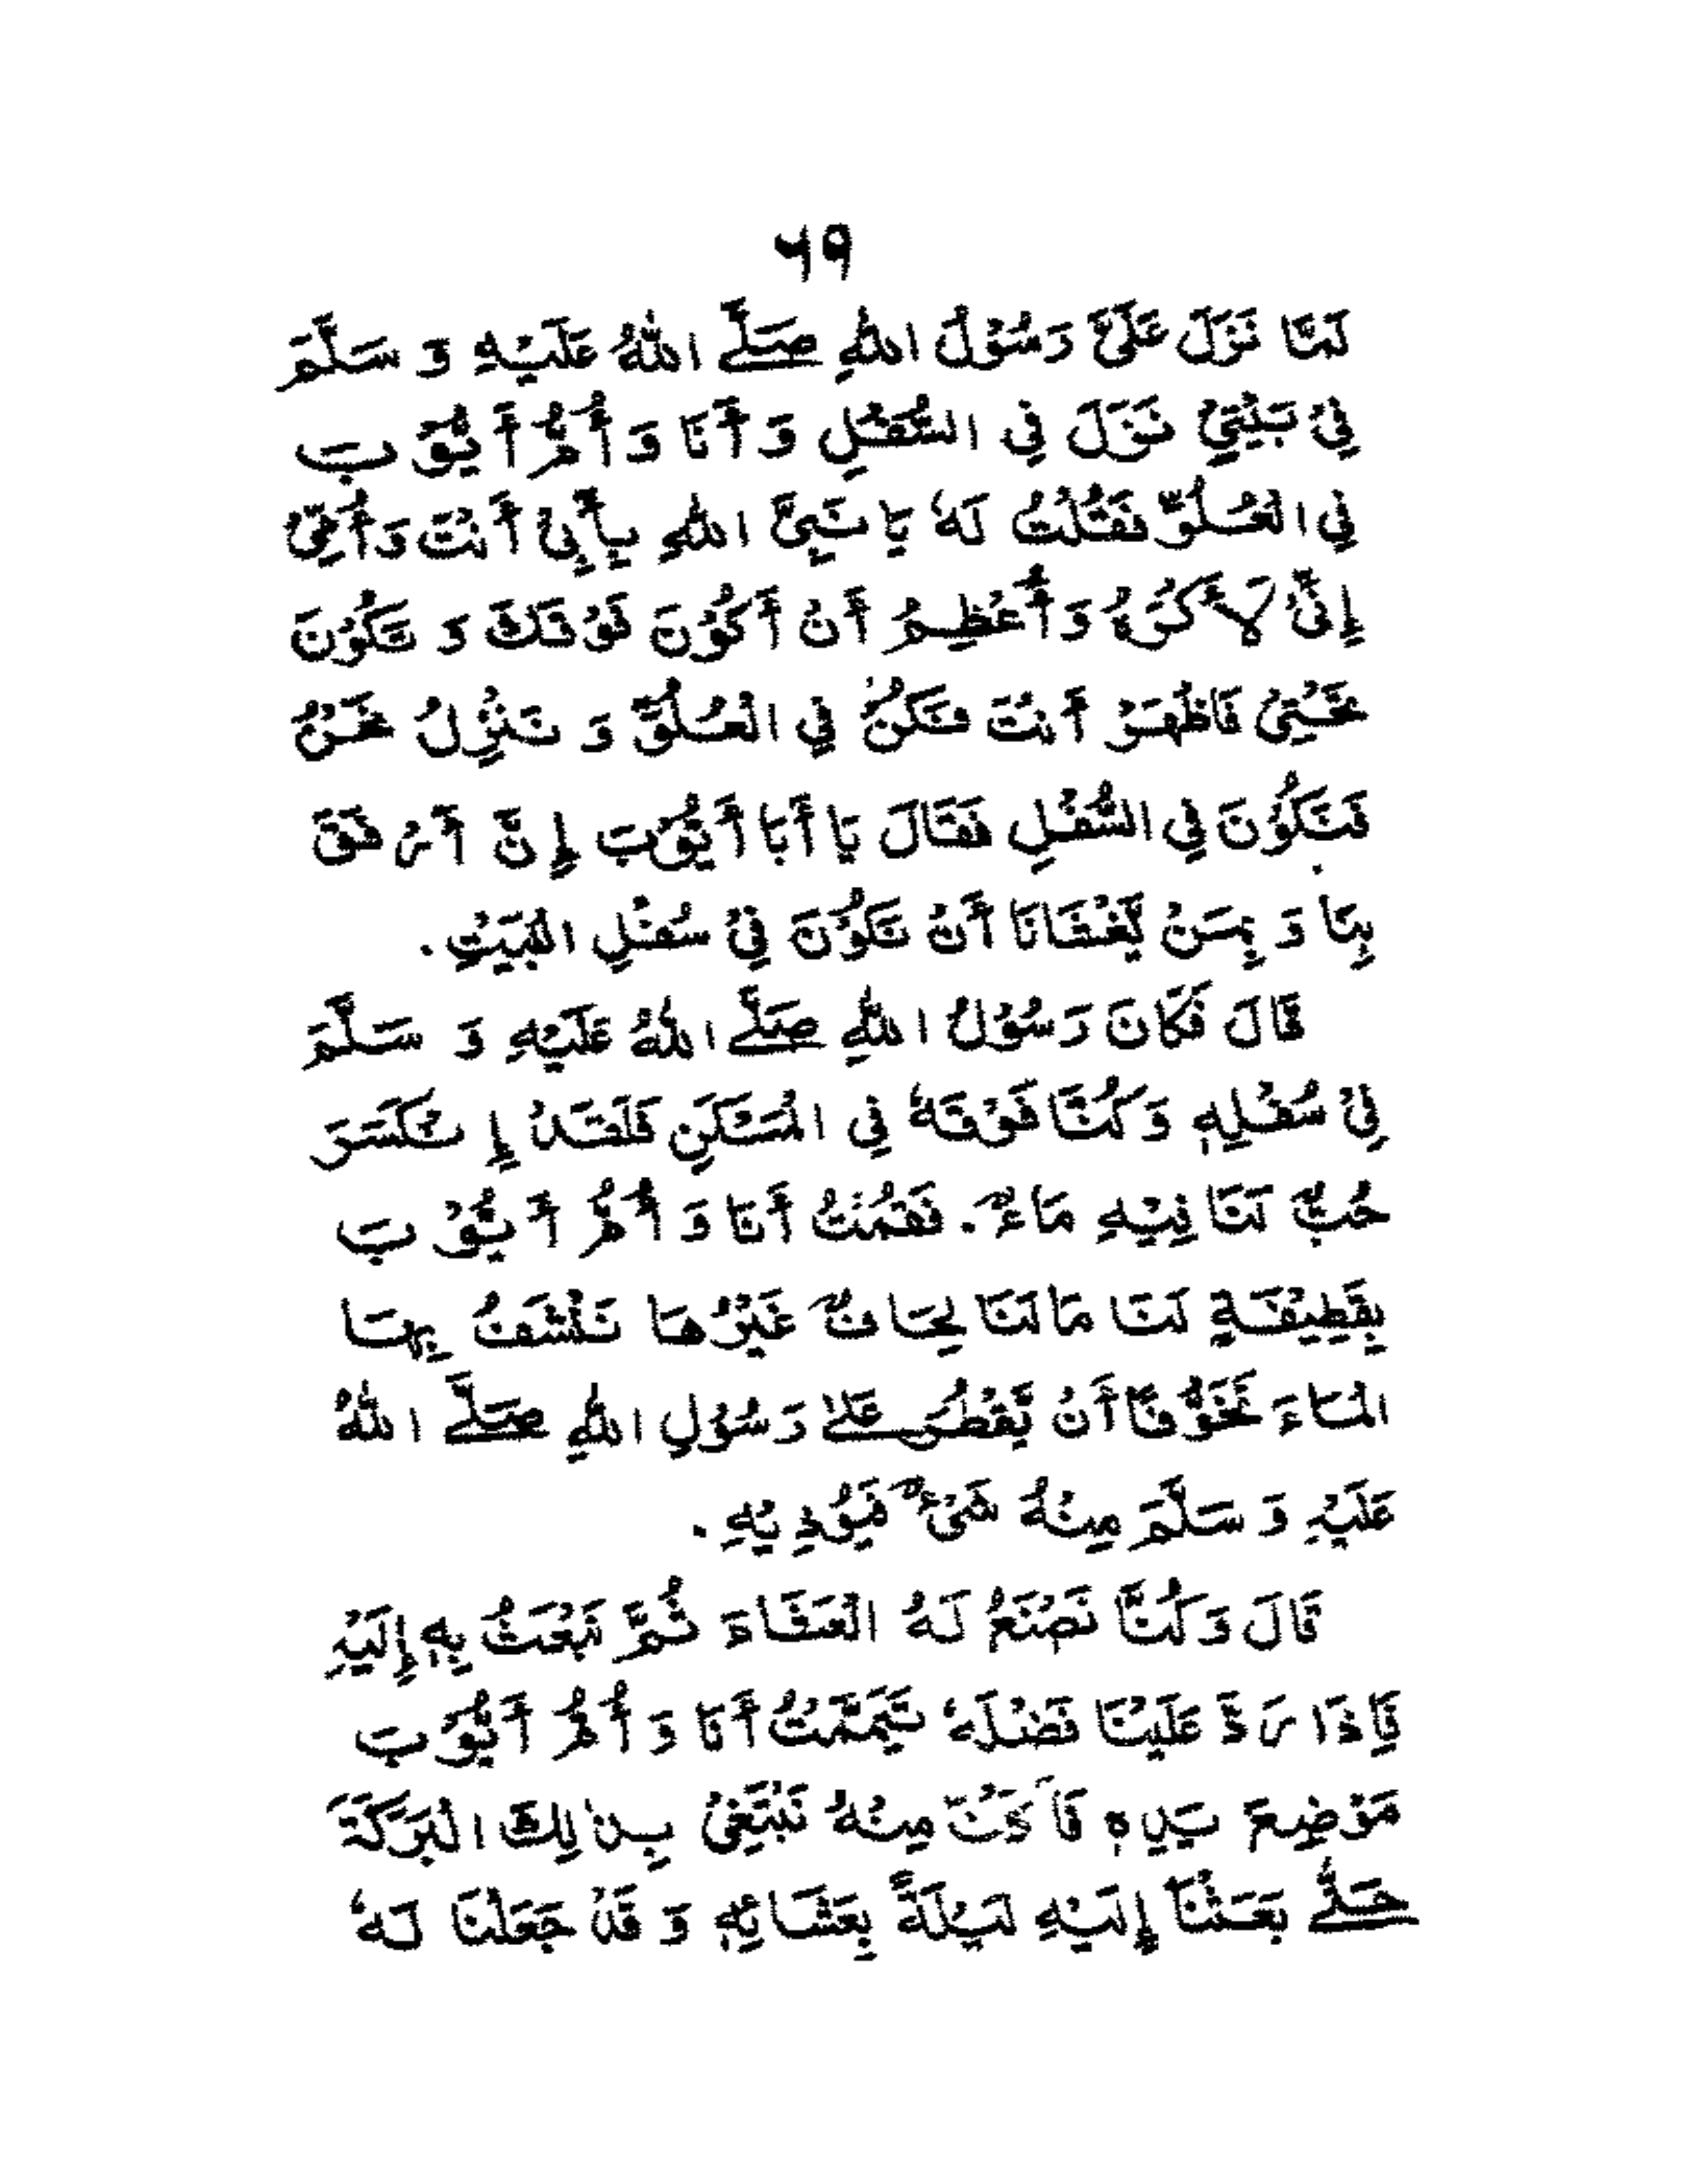 ٦٩
لَمَّا نَزَلَ عَلَيَّ رَسُوْلُ اللهِ صَلَّے اللهُ عَلَيْهِ وَ سَلَّمَ
فِيْ بَيْتِيْ نَزَلَ فِي السُّفْلِ وَ أَنَا وَ أُمُّ أَيُّوْبَ
فِي الْعُلُوِّ فَقُلْتُ لَهٗ يَا نَبِيَّ اللهِ بِأَبِيْ أَنْتَ وَ أُمِّيْ
إِنِّيْ لَأَكْرَهُ وَ أُعْظِمُ أَنْ أَكُوْنَ فَوْقَكَ وَ تَكُوْنَ
تَحْتِيْ فَاظْهَرْ أَنْتَ فَكُنْ فِي الْعُلُوِّ وَ نَنْزِلُ نَحْنُ
فَنَكُوْنَ فِي السُّفْلِ فَقَالَ يَا أَبَا أَيُّوْبَ إِنَّ أَرْفَقَ
بِنَا وَ بِمَنْ يَّغْشَانَا أَنْ نَّكُوْنَ فِيْ سُفْلِ الْبَيْتِ.
قَالَ فَكَانَ رَسُوْلُ اللهِ صَلَّے اللهُ عَلَيْهِ وَ سَلَّمَ
فِيْ سُفْلِهٖ وَ كُنَّا فَوْقَهٗ فِي الْمَسْكَنِ فَلَقَدْ إِنْكَسَرَ
حُبٌّ لَنَا فِيْهِ مَاءٌ. فَقُمْتُ أَنَا وَ أُمُّ أَيُّوْبَ
بِقَطِيْفَةٍ لَنَا مَا لَنَا لِحَافٌ غَيْرُهَا نَنْشَفُ بِهَا
الْمَاءَ تَخَوُّفًا أَنْ يَّقْطُرَ عَلٰے رَسُوْلِ اللهِ صَلَّے اللهُ
عَلَيْهِ وَ سَلَّمَ مِنْهُ شَيْءٌ فَيُؤْذِيْهِ.
قَالَ وَ كُنَّا نَصْنَعُ لَهُ الْعَشَاءَ ثُمَّ نَبْعَثُ بِهٖ إِلَيْهِ
فَإِذَا رَدَّ عَلَيْنَا فَضْلَهٗ تَيَمَّمْتُ أَنَا وَ أُمُّ أَيُّوْبَ
مَوْضِعَ يَدِهٖ فَأَكَلْنَا مِنْهُ نَبْتَغِيْ بِذٰلِكَ الْبَرَكَةَ
حَتّٰے بَعَثْنَا إِلَيْهِ لَيْلَةً بِعَشَائِهٖ وَ قَدْ جَعَلْنَا لَهٗ